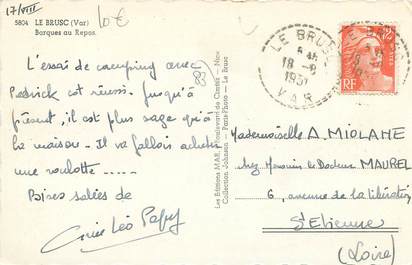 17/VIII
10€
5804 LE BRUSC (Var)
Barques au Repos.
L'essai de camping avec
est réussi. Jusqu'à
présent, il est plus sage qu'à
la maison. Il va falloir acheter
une roulotte .....
Bises salées de
Léo
83
Les Editions MAR, Boulevard de Cimiez - Nice
Collection Johnson - Paris-Photo - Le Brusc
LE BRUSC
18 -8
1951
VAR
RF
Mademoiselle A. MIOLANE
chez Monsieur le Docteur MAUREL
6, avenue de la libération
St Etienne
(Loire)